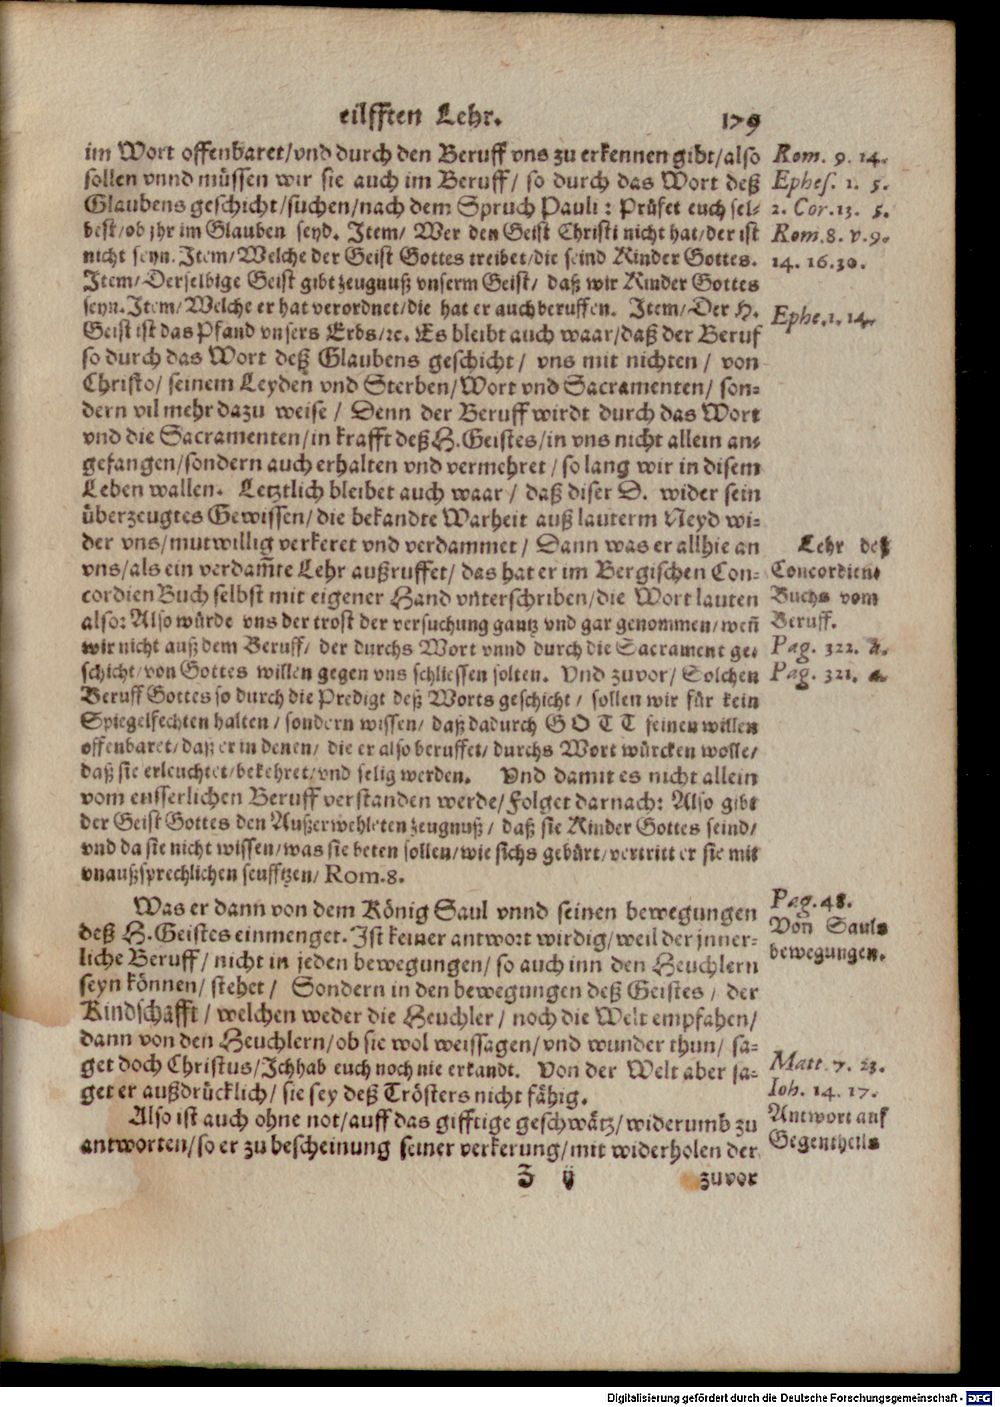 eilfften Lehr. 179
im Wort offenbaret/vnd durch den Beruff vns zu erkennen gibt/also
sollen vnnd müssen wir sie auch im Beruff/ so durch das Wort deß
Glaubens geschicht/suchen/nach dem Spruch Pauli: Prüfet euch sel-
best/ob jhr im Glauben seyd. Item/ Wer den Geist Christi nicht hat/der ist
nicht seyn. Item/Welche der Geist Gottes treibet/die seind Kinder Gottes.
Item/Derselbige Geist gibt zeugnuß vnserm Geist/ daß wir Kinder Gottes
seyn. Item/Welche er hat verordnet/die hat er auch beruffen. Item/Der H.
Geist ist das Pfand vnsers Erbs/ꝛc. Es bleibt auch waar/daß der Beruf
so durch das Wort deß Glaubens geschicht/ vns mit nichten/ von
Christo/ seinem Leyden vnd Sterben/Wort vnd Sacramenten/ son-
dern vil mehr dazu weise/ Denn der Beruff wirdt durch das Wort
vnd die Sacramenten/in krafft deß H. Geistes/in vns nicht allein an-
gefangen/sondern auch erhalten vnd vermehret/so lang wir in disem
Leben wallen. Letztlich bleibet auch waar/ daß diser D. wider sein
überzeugtes Gewissen/die bekandte Warheit auß lauterm Neyd wi-
der vns/mutwillig verkeret vnd verdammet/ Dann was er allhie an
vns/als ein verdam̃te Lehr außruffet/das hat er im Bergischen Con-
cordien Buch selbst mit eigener Hand vnterschriben/die Wort lauten
also: Also würde vns der trost der versuchung gantz vnd gar genommen/weñ
wir nicht auß dem Beruff/ der durchs Wort vnnd durch die Sacrament ge-
schicht/von Gottes willen gegen vns schliessen solten. Vnd zuvor/ Solchen
Beruff Gottes so durch die Predigt deß Worts geschicht/ sollen wir für kein
Spiegelfechten halten/sondern wissen/ daß dadurch GOTT seinen willen
offenbaret/daß er in denen/ die er also beruffet/durchs Wort würcken wolle/
daß sie erleuchtet/bekehret/vnd selig werden. Vnd damit es nicht allein
vom eusserlichen Beruff verstanden werde/Folget darnach: Also gibt
der Geist Gottes den Außerwehleten zeugnuß/ daß sie Kinder Gottes seind/
vnd da sie nicht wissen/was sie beten sollen/wie sichs gebürt/vertritt er sie mit
vnaußsprechlichen seufftzen/ Rom.8.
Was er dann von dem König Saul vnnd seinen bewegungen
deß H. Geistes einmenget. Ist keiner antwort wirdig/weil der jnner-
liche Beruff/ nicht in jeden bewegungen/ so auch inn den Heuchlern
seyn können/ stehet/ Sondern in den bewegungen deß Geistes/ der
Kindschafft/ welchen weder die Heuchler/ noch die Welt empfahen/
dann von den Heuchlern/ob sie wol weissagen/vnd wunder thun/ sa-
get doch Christus/Ich hab euch noch nie erkandt. Von der Welt aber sa-
get er außdrücklich/ sie sey deß Trösters nicht fähig.
Also ist auch ohne not/auff das gifftige geschwätz/widerumb zu
antworten/so er zu bescheinung seiner verkerung/mit widerholen der
Z ij zuvor
Rom. 9. 14.
Ephes. 1. 5.
2. Cor.13. 5.
Rom.8. v.9.
14. 16.30.
Ephe.1.14.
Lehr deß
Concordien
Buchs vom
Beruff.
Pag. 322. a.
Pag. 321. a.
Pag.48.
Von Sauls
bewegungen.
Matt.7.23.
Ioh. 14. 17.
Antwort auf
Gegentheils
Digitalisierung gefördert durch die Deutsche Forschungsgemeinschaft - DFG